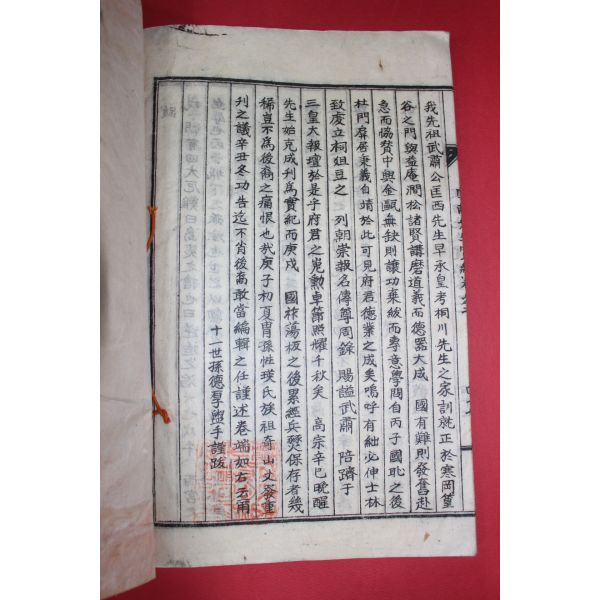 我先祖武肅公匡西先生早承皇考桐川先生之家訓就正於寒岡篁
谷之門與益庵澗松諸賢講磨道義而德器大成 國有難則發奮赴
急而協贊中興金甌無缺則讓功棄紱而專意學問自丙子國恥之後
杜門屛居秉義自靖於此可見府君德業之成矣嗚呼有絀必伸士林
致虔立祠俎豆之 列朝崇報名傳尊周錄 賜謚武肅 陪躋于
三皇大報壇於是乎府君之 勳卓節照耀千秋矣 高宗辛巳晩醒
先生始克成刋爲實紀而庚戌 國祚蕩板之後累經兵燹保存者幾
稀豈不爲後裔之痛恨也哉庚子初夏冑孫性瑛氏族祖奇山丈發重
刋之議辛丑冬功告迄不肖後裔敢當編輯之任謹述卷端如右云爾
十一世孫德 盥手謹跋